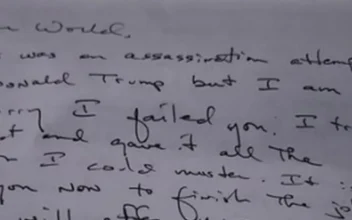 World,
was an assassination attemp
onald Trump but I am
rry I failed you. I tr
and gave it all the
I could muster. It
you now to finish the jo
will